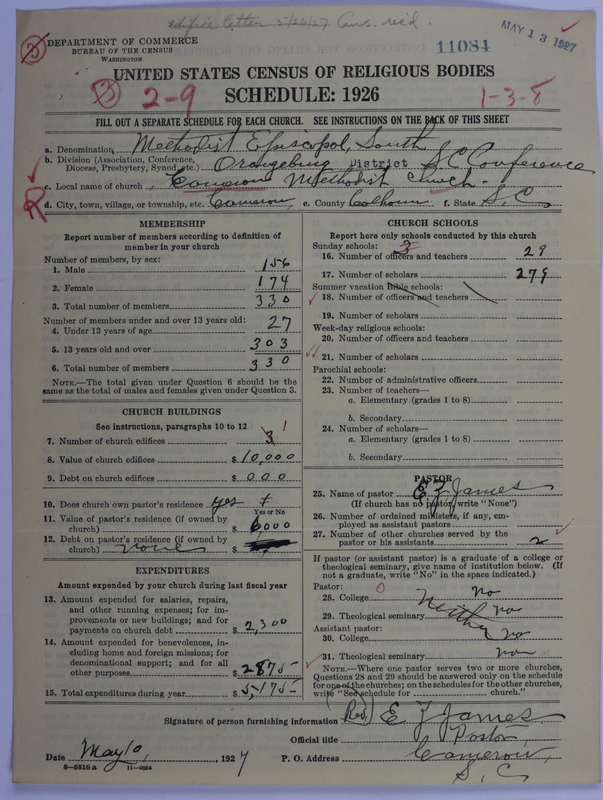 Edifice letter 5/26/27 Ans. rec'd.
DEPARTMENT OF COMMERCE
BUREAU OF THE CENSUS
WASHINGTON
11084
MAY 13 1927
UNITED STATES CENSUS OF RELIGIOUS BODIES
3 2-9
SCHEDULE: 1926
1-3-8
FILL OUT A SEPARATE SCHEDULE FOR EACH CHURCH. SEE INSTRUCTIONS ON THE BACK OF THIS SHEET
a. Denomination, Methodist Episcopal, South
b. Division (Association, Conference, Diocese, Presbytery, Synod, etc.) Orangeburg District S.C. Conference
c. Local name of church, Cameron Methodist Church.
R
d. City, town, village, or township, etc. Cameron, e. County Calhoun f. State S.C
MEMBERSHIP
Report number of members according to definition of member in your church
Number of members, by sex:
1. Male 156
2. Female 174
3. Total number of members 330
Number of members under and over 13 years old:
4. Under 13 years of age 27
5. 13 years old and over 303
6. Total number of members 330
NOTE.—The total given under Question 6 should be the same as the total of males and females given under Question 3.
CHURCH BUILDINGS
See instructions, paragraphs 10 to 12
7. Number of church edifices 3 1
8. Value of church edifices $ 10,000
9. Debt on church edifices $ 000
10. Does church own pastor's residence? yes
Yes or No
11. Value of pastor's residence (if owned by church) $ 6000
12. Debt on pastor's residence (if owned by church) none $
EXPENDITURES
Amount expended by your church during last fiscal year
13. Amount expended for salaries, repairs, and other running expenses; for improvements or new buildings; and for payments on church debt $ 2,300
14. Amount expended for benevolences, including home and foreign missions; for denominational support; and for all other purposes $ 2875-
15. Total expenditures during year $ 5,175-
CHURCH SCHOOLS
Report here only schools conducted by this church
Sunday schools: 3
16. Number of officers and teachers 29
17. Number of scholars 279
Summer vacation Bible schools:
18. Number of officers and teachers
19. Number of scholars
Week-day religious schools:
20. Number of officers and teachers
21. Number of scholars
Parochial schools:
22. Number of administrative officers
23. Number of teachers—
a. Elementary (grades 1 to 8)
b. Secondary
24. Number of scholars—
a. Elementary (grades 1 to 8)
b. Secondary
PASTOR
25. Name of pastor E. Z James
(If church has no pastor, write "None")
26. Number of ordained ministers, if any, employed as assistant pastors
27. Number of other churches served by the pastor or his assistants 2
If pastor (or assistant pastor) is a graduate of a college or theological seminary, give name of institution below. (If not a graduate, write "No" in the space indicated.)
Pastor: 0
28. College no
29. Theological seminary Neither no
Assistant pastor:
30. College no
31. Theological seminary no
NOTE.—Where one pastor serves two or more churches, Questions 28 and 29 should be answered only on the schedule for one of the churches; on the schedules for the other churches, write "See schedule for ______ church."
Signature of person furnishing information (Rev.) E Z James
Official title Pastor,
Date May 10, 1927 P. O. Address Cameron,
S.C
8-5518a 11-9664